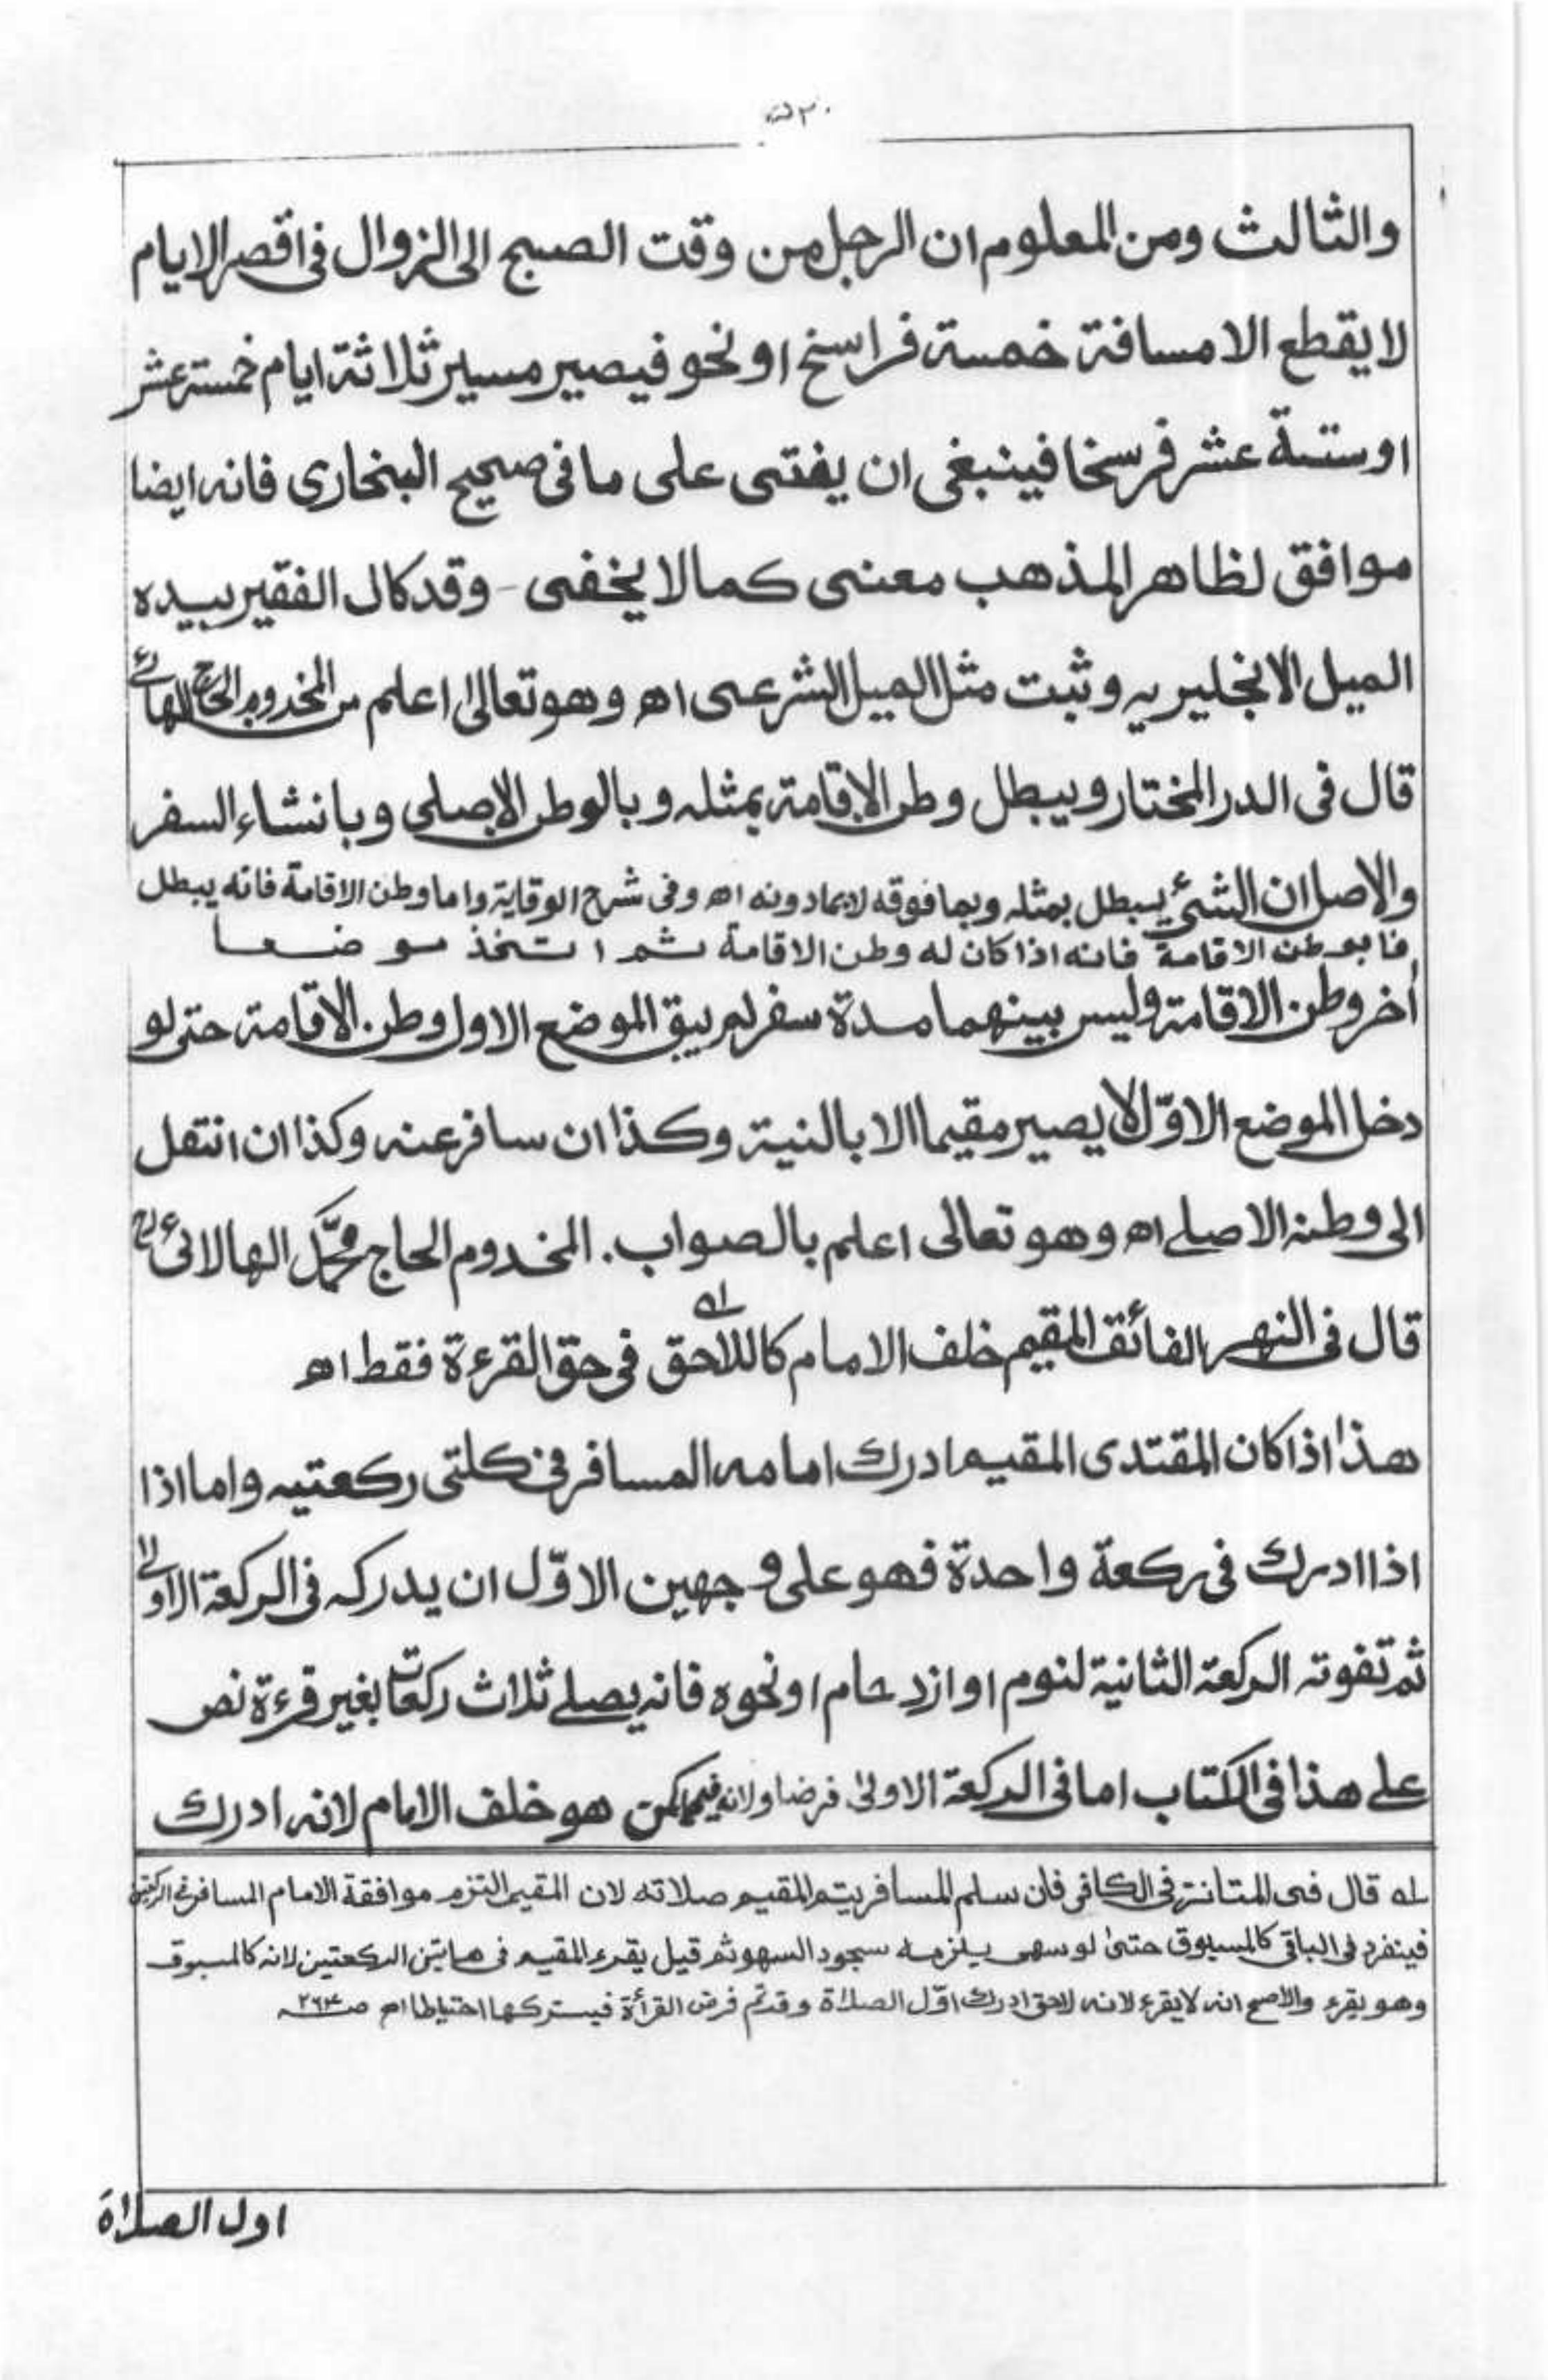 ۵۲۰
والثالث ومن المعلوم ان الرجل من وقت الصبح الى الزوال فى اقصر الايام
لا يقطع الا مسافة خمسة فراسخ او نحو فيصير مسير ثلاثة ايام خمسة عشر
او ستة عشر فرسخا فينبغى ان يفتى على ما فى صحيح البخارى فانه ايضا
موافق لظاهر المذهب معنى كما لا يخفى - وقد كال الفقير بيده
الميل الانجليريه وثبت مثل الميل الشرعى اھ وهو تعالىٰ اعلم من المخدوم الحاج
قال فى الدر المختار ويبطل وطن الاقامة بمثله وبالوطن الاصلى وبانشاء السفر
والاصل ان الشئ يبطل بمثله وبما فوقه لا بما دونه اھ وفى شرح الوقاية واما وطن الاقامة فانه يبطل
بوطن الاقامة فانه اذا كان له وطن الاقامة ثم اتخذ موضعا
أخر وطن الاقامة وليس بينهما مدة سفر لم يبق الموضع الاول وطن الاقامة حتى لو
دخل الموضع الاوّل لا يصير مقيما الا بالنية وكذا ان سافر عنه وكذا ان انتقل
الى وطنه الاصلے اھ وهو تعالى اعلم بالصواب. المخدوم الحاج محمّد الهالائى
قال فى النهر الفائق المقيم خلف الامام كاللاحق ؎۱ فى حق القرءة فقط اھ
هذا اذا كان المقتدى المقيم ادرك امامه المسافر فى كلتى ركعتيه واما اذا
اذا ادرك فى ركعة واحدة فهو على وجهين الاوّل ان يدركه فى الركعة الاولىٰ
ثم تفوته الركعة الثانية لنوم او ازدحام او نحوه فانه يصلے ثلاث ركعات بغير قرءة نص
علے هذا فى الكتاب اما فى الركعة الاولىٰ فرضا ولانه هو خلف الامام لانه ادرك
؎۱ قال فى المتانة فى الكافى فان سلم المسافر يتم المقيم صلاته لان المقيم التزم موافقة الامام المسافر فى الركعتين
فينفرد فى الباقى كالمسبوق حتىٰ لو سهى يلزمه سجود السهو ثم قيل يقرء المقيم فى هاتين الركعتين لانه كالمسبوق
وهو يقرء والاصح انه لا يقرء لانه لاحق ادرك اوّل الصلاة وقد تم فرض القرأة فيتركها احتياطا اھ صـ۲۶۳
اول الصلاة